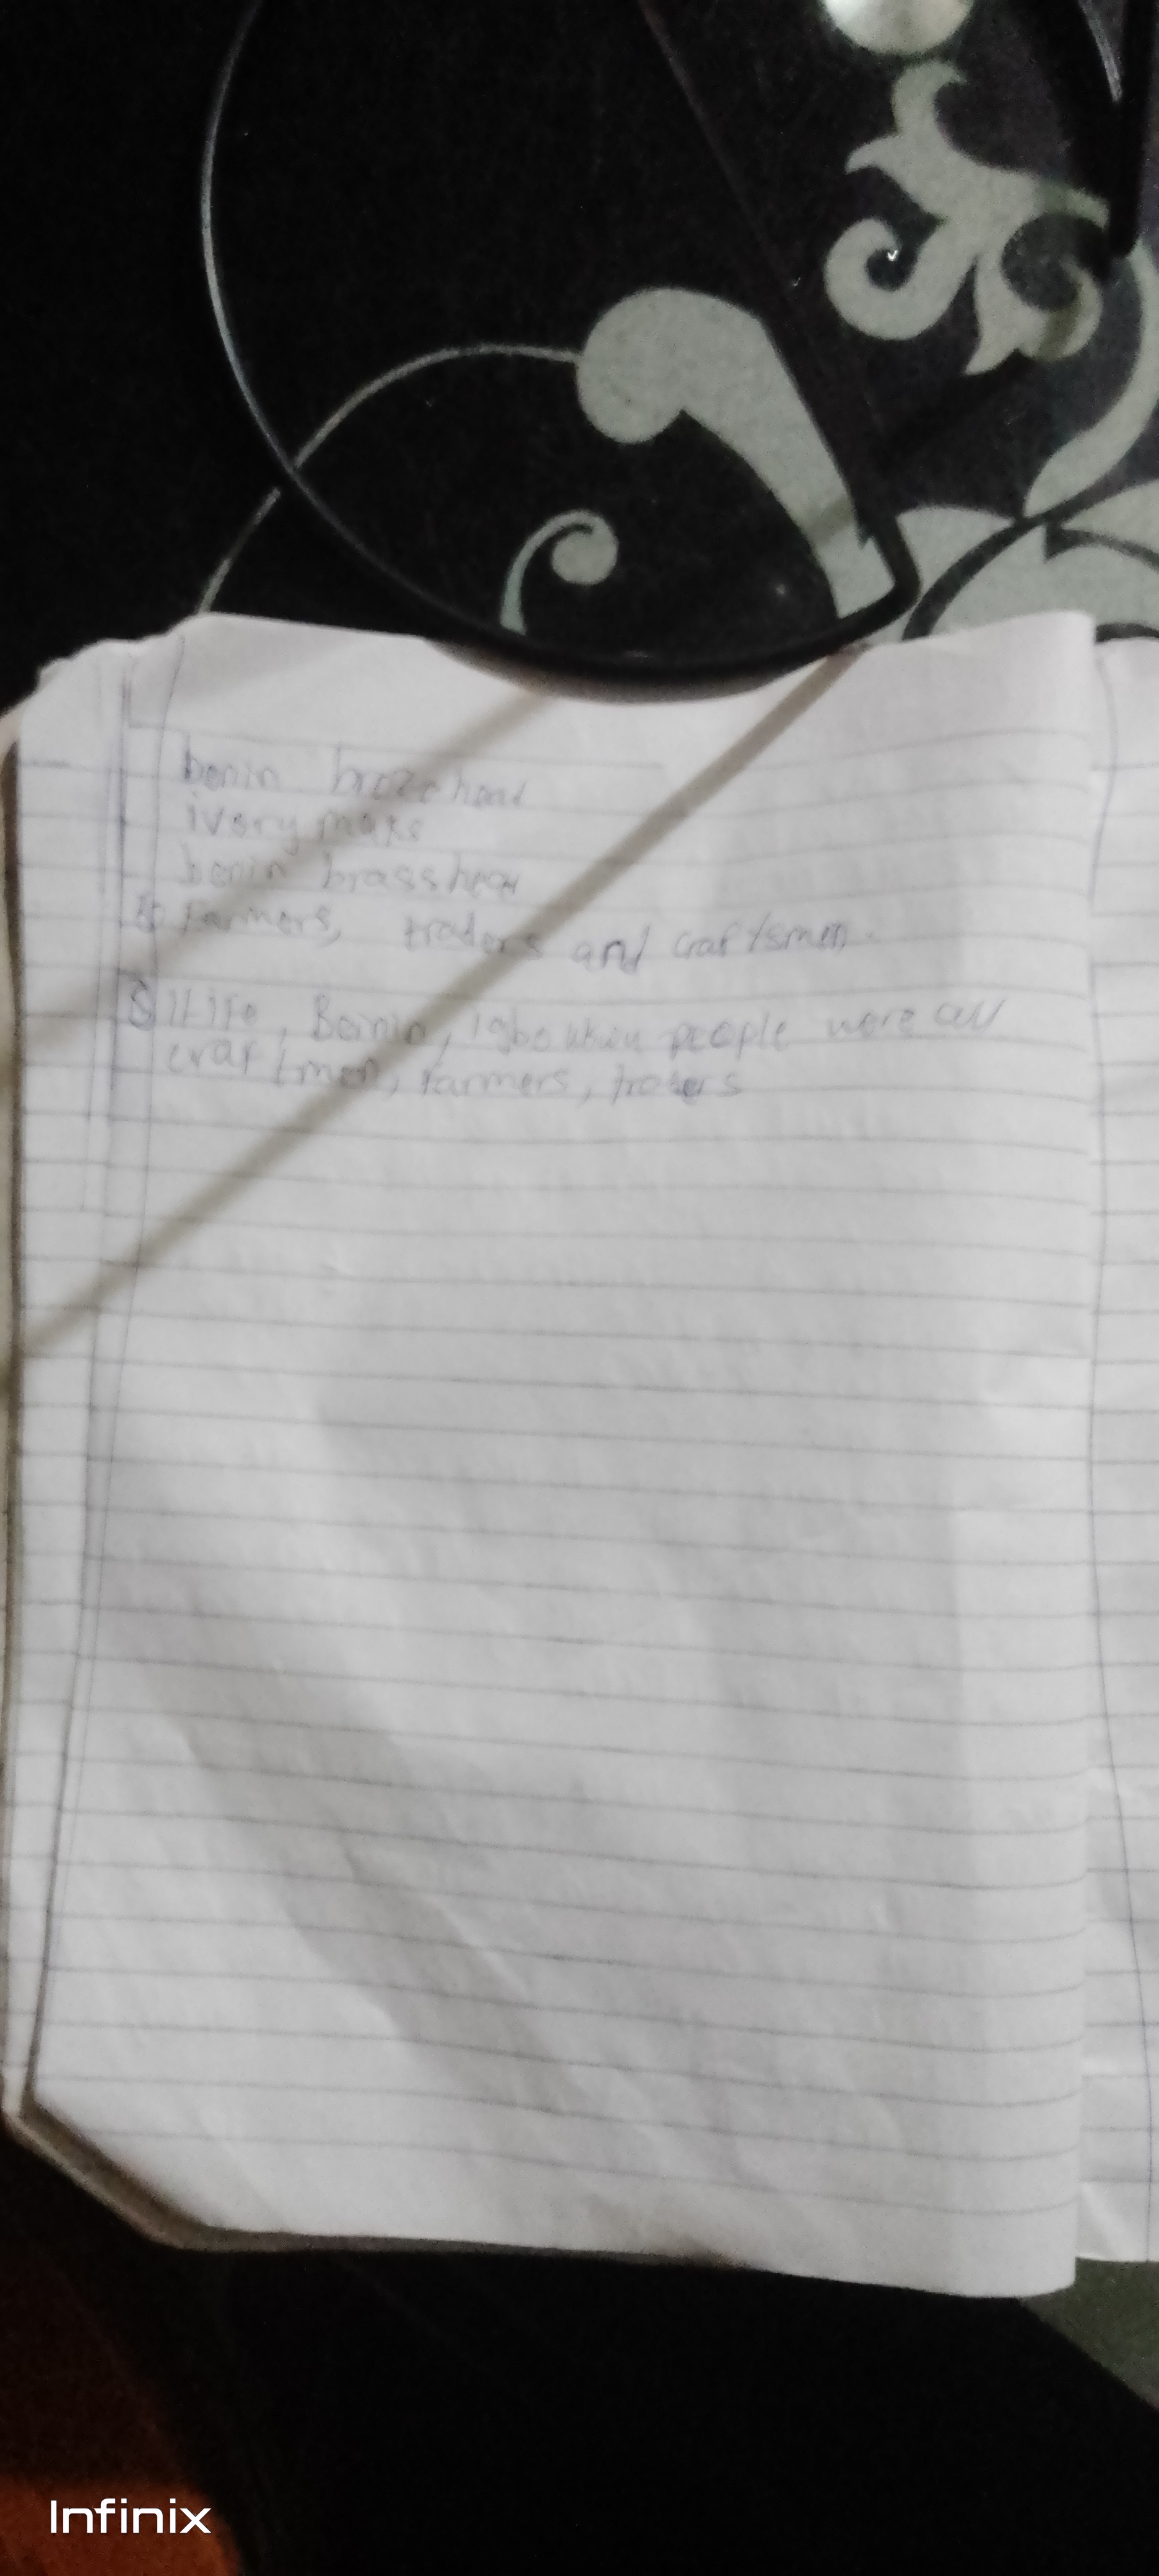 benin broze head
ivory maks
benin brass head
Farmers, traders and craftsmen.
Ilife, Beinin, igbo ukwu people were all
craftmen, farmers, traders
Infinix